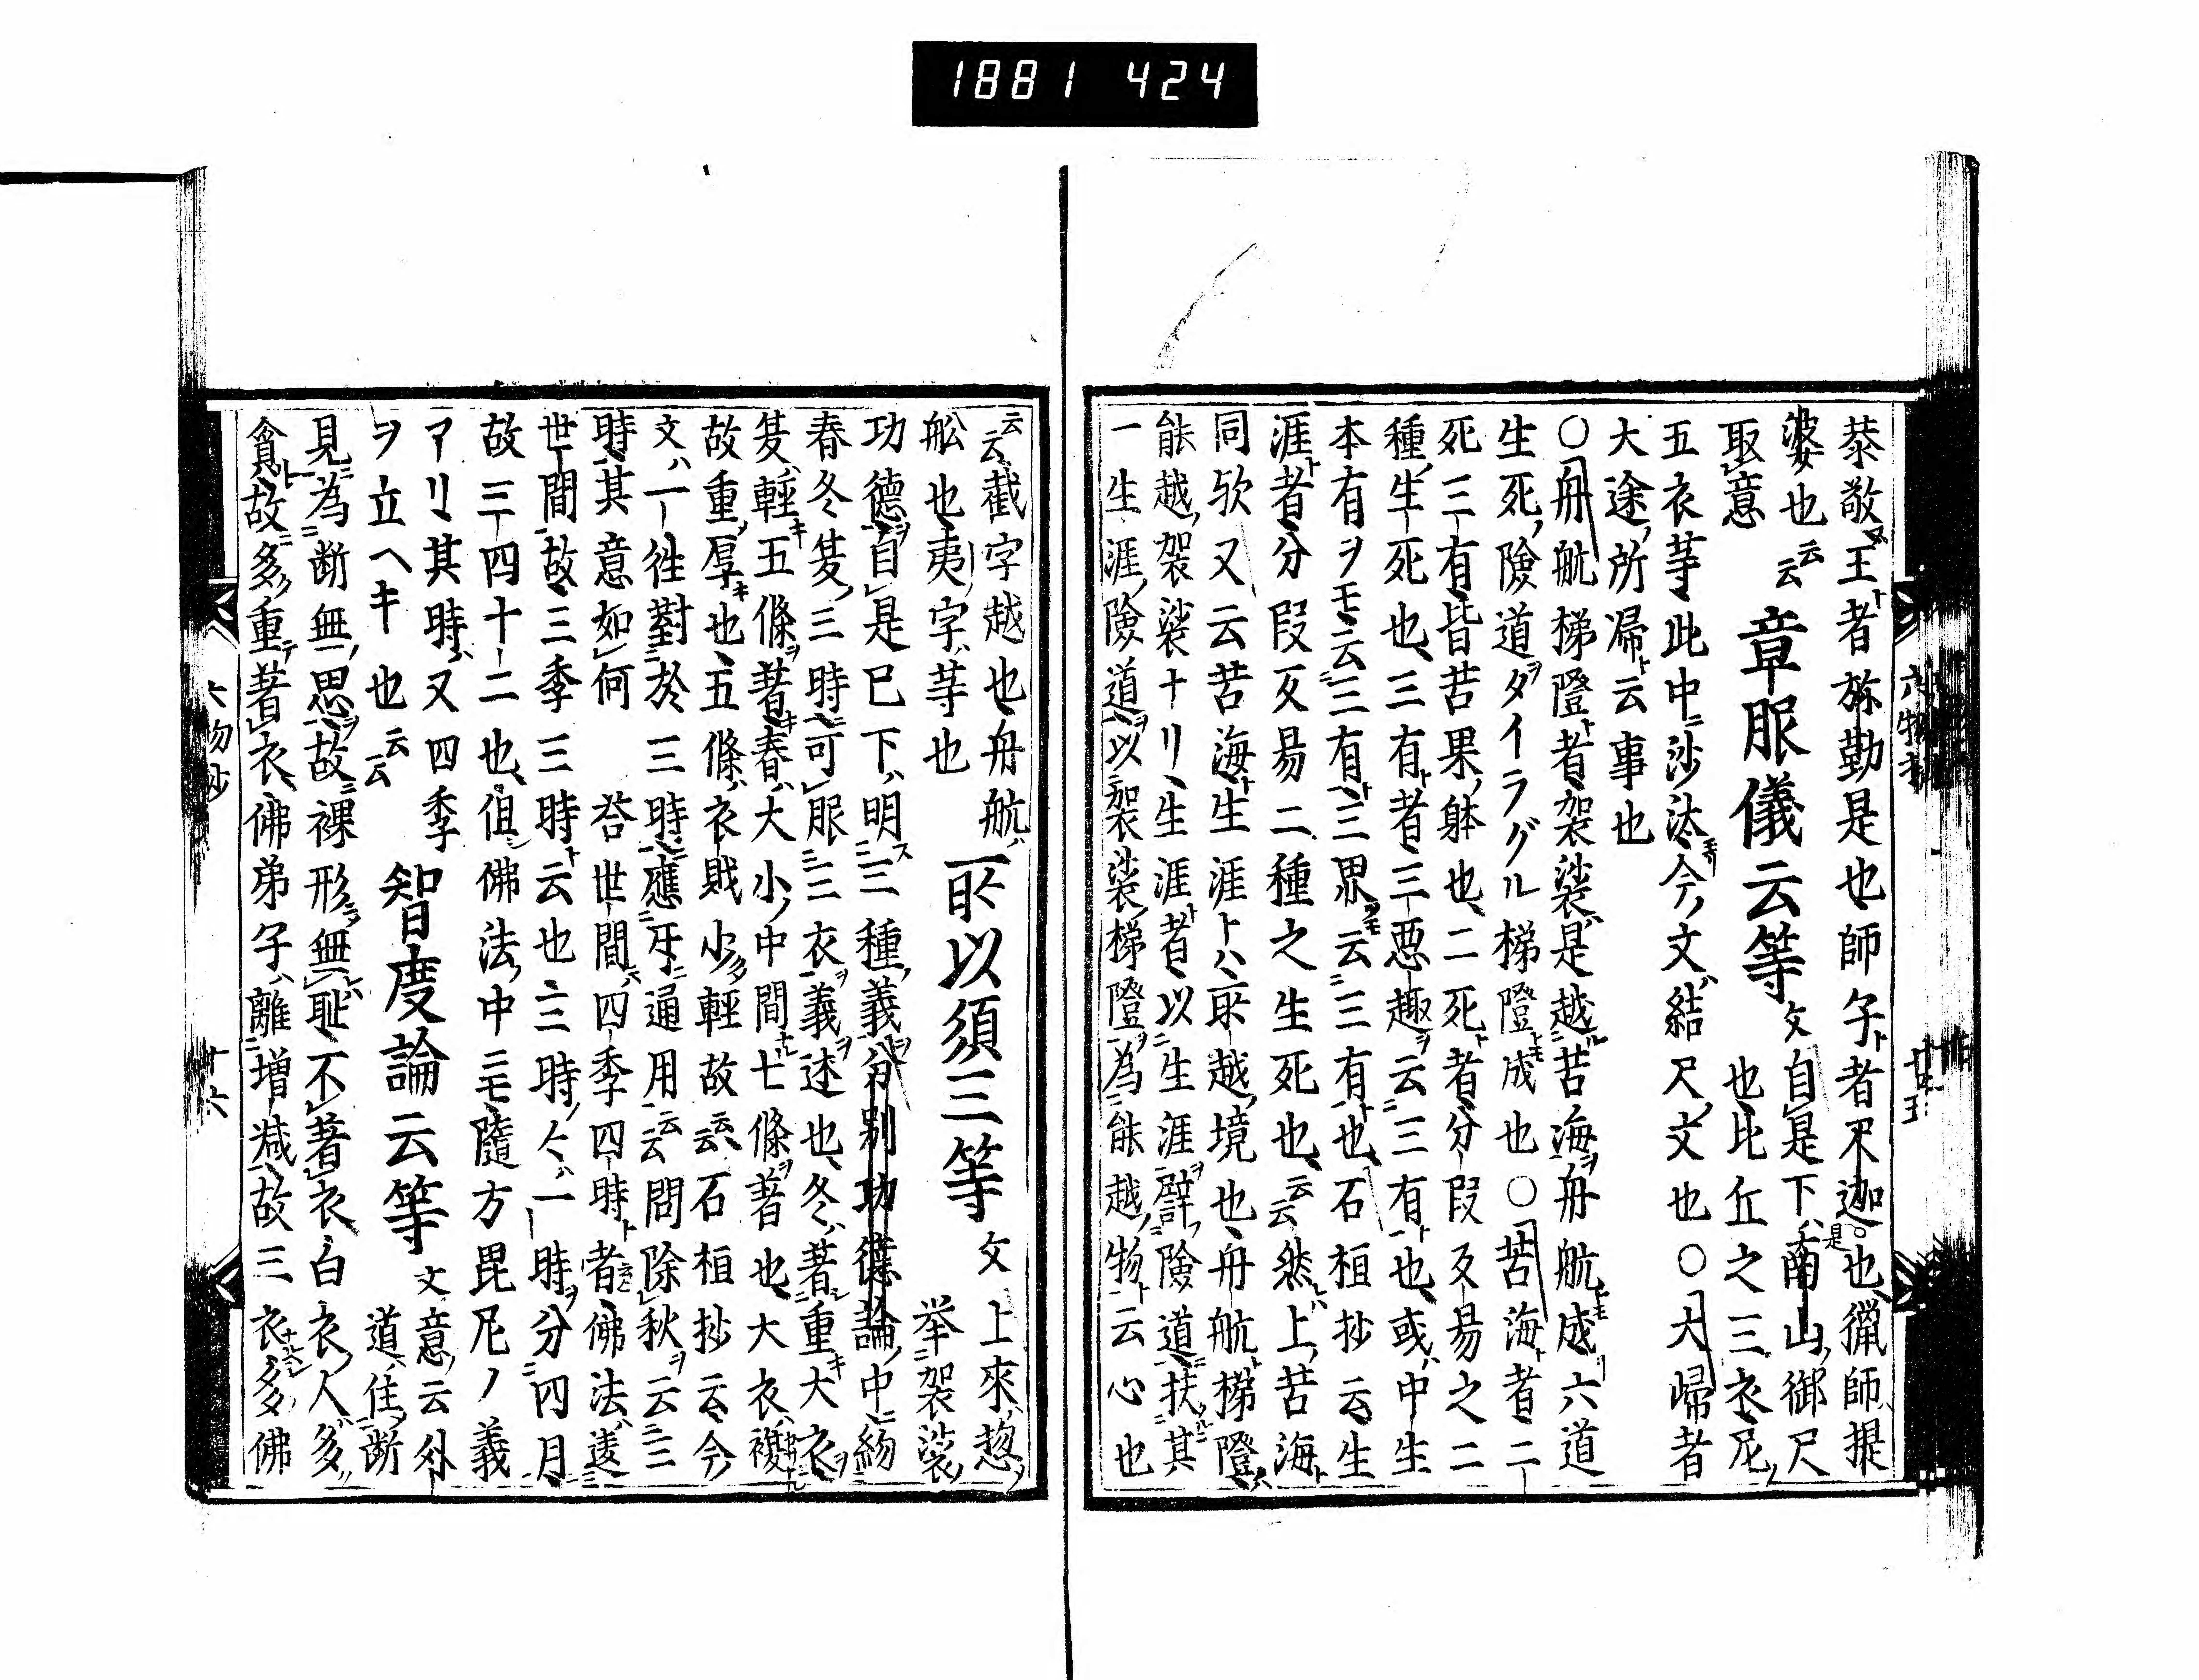 1881 424
恭敬ス王ト者弥勤是也師子ト者釈迦是也猟師提
婆也云云 章服儀云等文自是下ハ南山御尺
取意 也比丘之三衣尼
五衣䓁此中ニ沙汰今文ハ結尺文也〇大帰者
大途所帰ト云事也
〇舟航梯隥ト者袈裟是越苦海ヲ舟航トモ成六道
生死険道ヲタイラグル梯隥トモ成也〇苦海ト者二
死三有皆苦果躰也二死ト者分叚反易之二
種生死也三有ト者三悪趣ヲ云三有ト也或ハ中生
本有ヲモ云三有ト三界ヲモ云三有ト也石桓抄云生
涯ト者分叚反易二種之生死也云云然上苦海ト
同欤又云苦海ト生涯トハ所越境也舟航梯隥ハ
能越袈裟ナリ生涯ト者以生涯ヲ辟険道ニ扶其
一生涯険道ヲ以袈裟梯隥ヲ為能越物ト云心也
六物抄
云云截字越也舟航ハ所以須三等文上来惣ヲ
舩也夷字ハ䓁也 挙袈裟
功徳ヲ自是已下ハ明三種義ヲ分別功徳論中ニ紛
春冬夏三時ニ可服三衣ヲ義ヲ述也冬ハ著重キ大衣ヲ
夏ハ軽キ五條ヲ著春ハ大小ノ中間ナル七條ヲ著也大衣複
故重厚キ也五條ハ衣財少軽故云云石桓抄云今ノ
文ハ一往對於三時ニ應牙通用云云問除秋ヲ云三
時其意如何 荅世間ハ四季四時ト者佛法ハ遠
世間ニ故三季三時ト云也三時ノ仐ハ一時ヲ分四月
故三四十二也但佛法中ニモ隨方毘尼ノ義
アリ其時ハ又四季 智度論云等文意云外
ヲ立ヘキ也云云 道住断
見ニ為断無思ヲ故裸形無耻不著衣白衣人多
貪ト故多重著衣佛弟子ハ離増减故三衣多佛
六物抄 十六